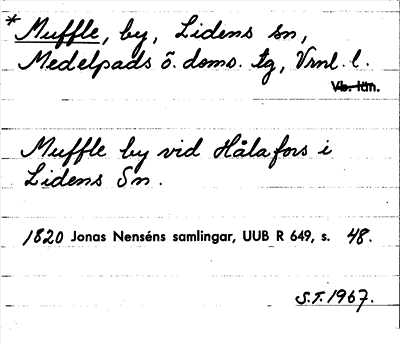 * Muffle, by, Lidens sn,
Medelpads ö. doms. tg, Vrnl. l.
Vb. län.
Muffle by vid Hålafors i
Lidens Sn.
1820 Jonas Nenséns samlingar, UUB R 649, s. 48.
S.T. 1967.